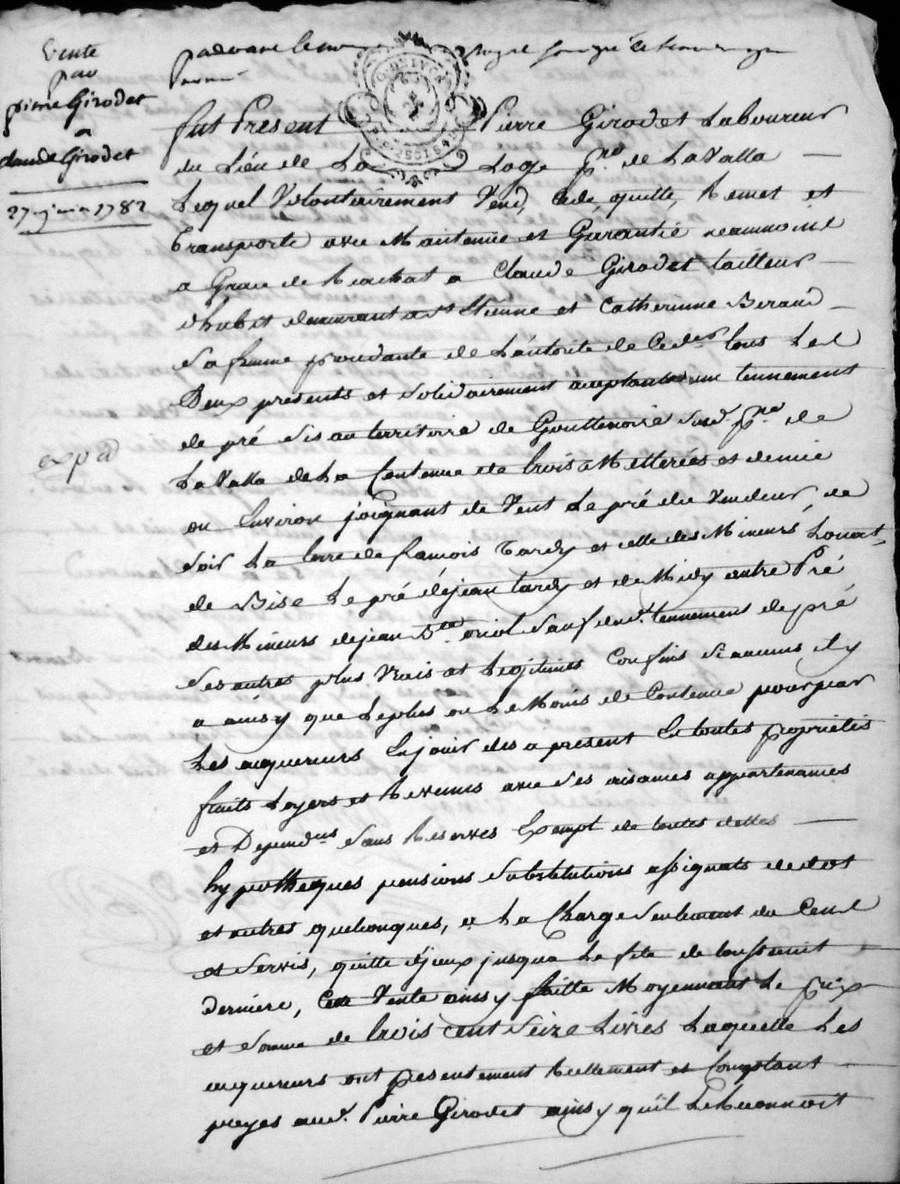 Vente
par
pierre Girodet
a
claude Girodet
27 juin 1782
pardevant le no
royal soussigné
fut Present Pierre Girodet Laboureur
du Lieu de La Loge psse de LaValla
Lequel Volontairement Vend, Cede quitte, Remet et
Transporte avec Maintenüe et Garantié neanmoins
a Grace de Reachat a Claude Girodet tailleur
d'habit demeurant a st Etienne et Catherinne Beraud
Sa femme procedante de L'autorité de Ceder tous Les
Deux presents et Solidairement acceptants un tennement
de pré Sis au territoire de Gouttenoire Susd. psse de
expd
LaValla de La Contenue de trois Metterées et demie
ou Environ joignant de Vent Le pré du Vendeur, de
Soir La terre de francois Tardy et celle des Mineurs
de Bise Le pré de jean tardy et de Midy autre Pré
des Mineurs de jean oriol Sauf dud. tennement de pré
Ses autres plus Vrais et Legitimes Confins Si aucuns il y
a ainsy que Le plus ou Le Moins de Contenue pour par
Les acquereurs En jouir des a present En toutes proprietés
fruits Loyers et Revenus avec Ses aisances appartenances
et Dépendces Sans Reserves Exempt de toutes dettes
hypotheques pensions Substitutions assignats de dot
et autres quelconques, a La Charge Seulement du Cens
et Servis, quitte d'jceux jusqua La fête de toussaint
derniere, Cette Vente ainsy faitte Moyennant Le prix
et Somme de trois cent Seize Livres Laquelle Les
acquereurs ont presentement Reellement et Comptant
payes aud. Pierre Girodet ainsy qu'il Le Reconnoit